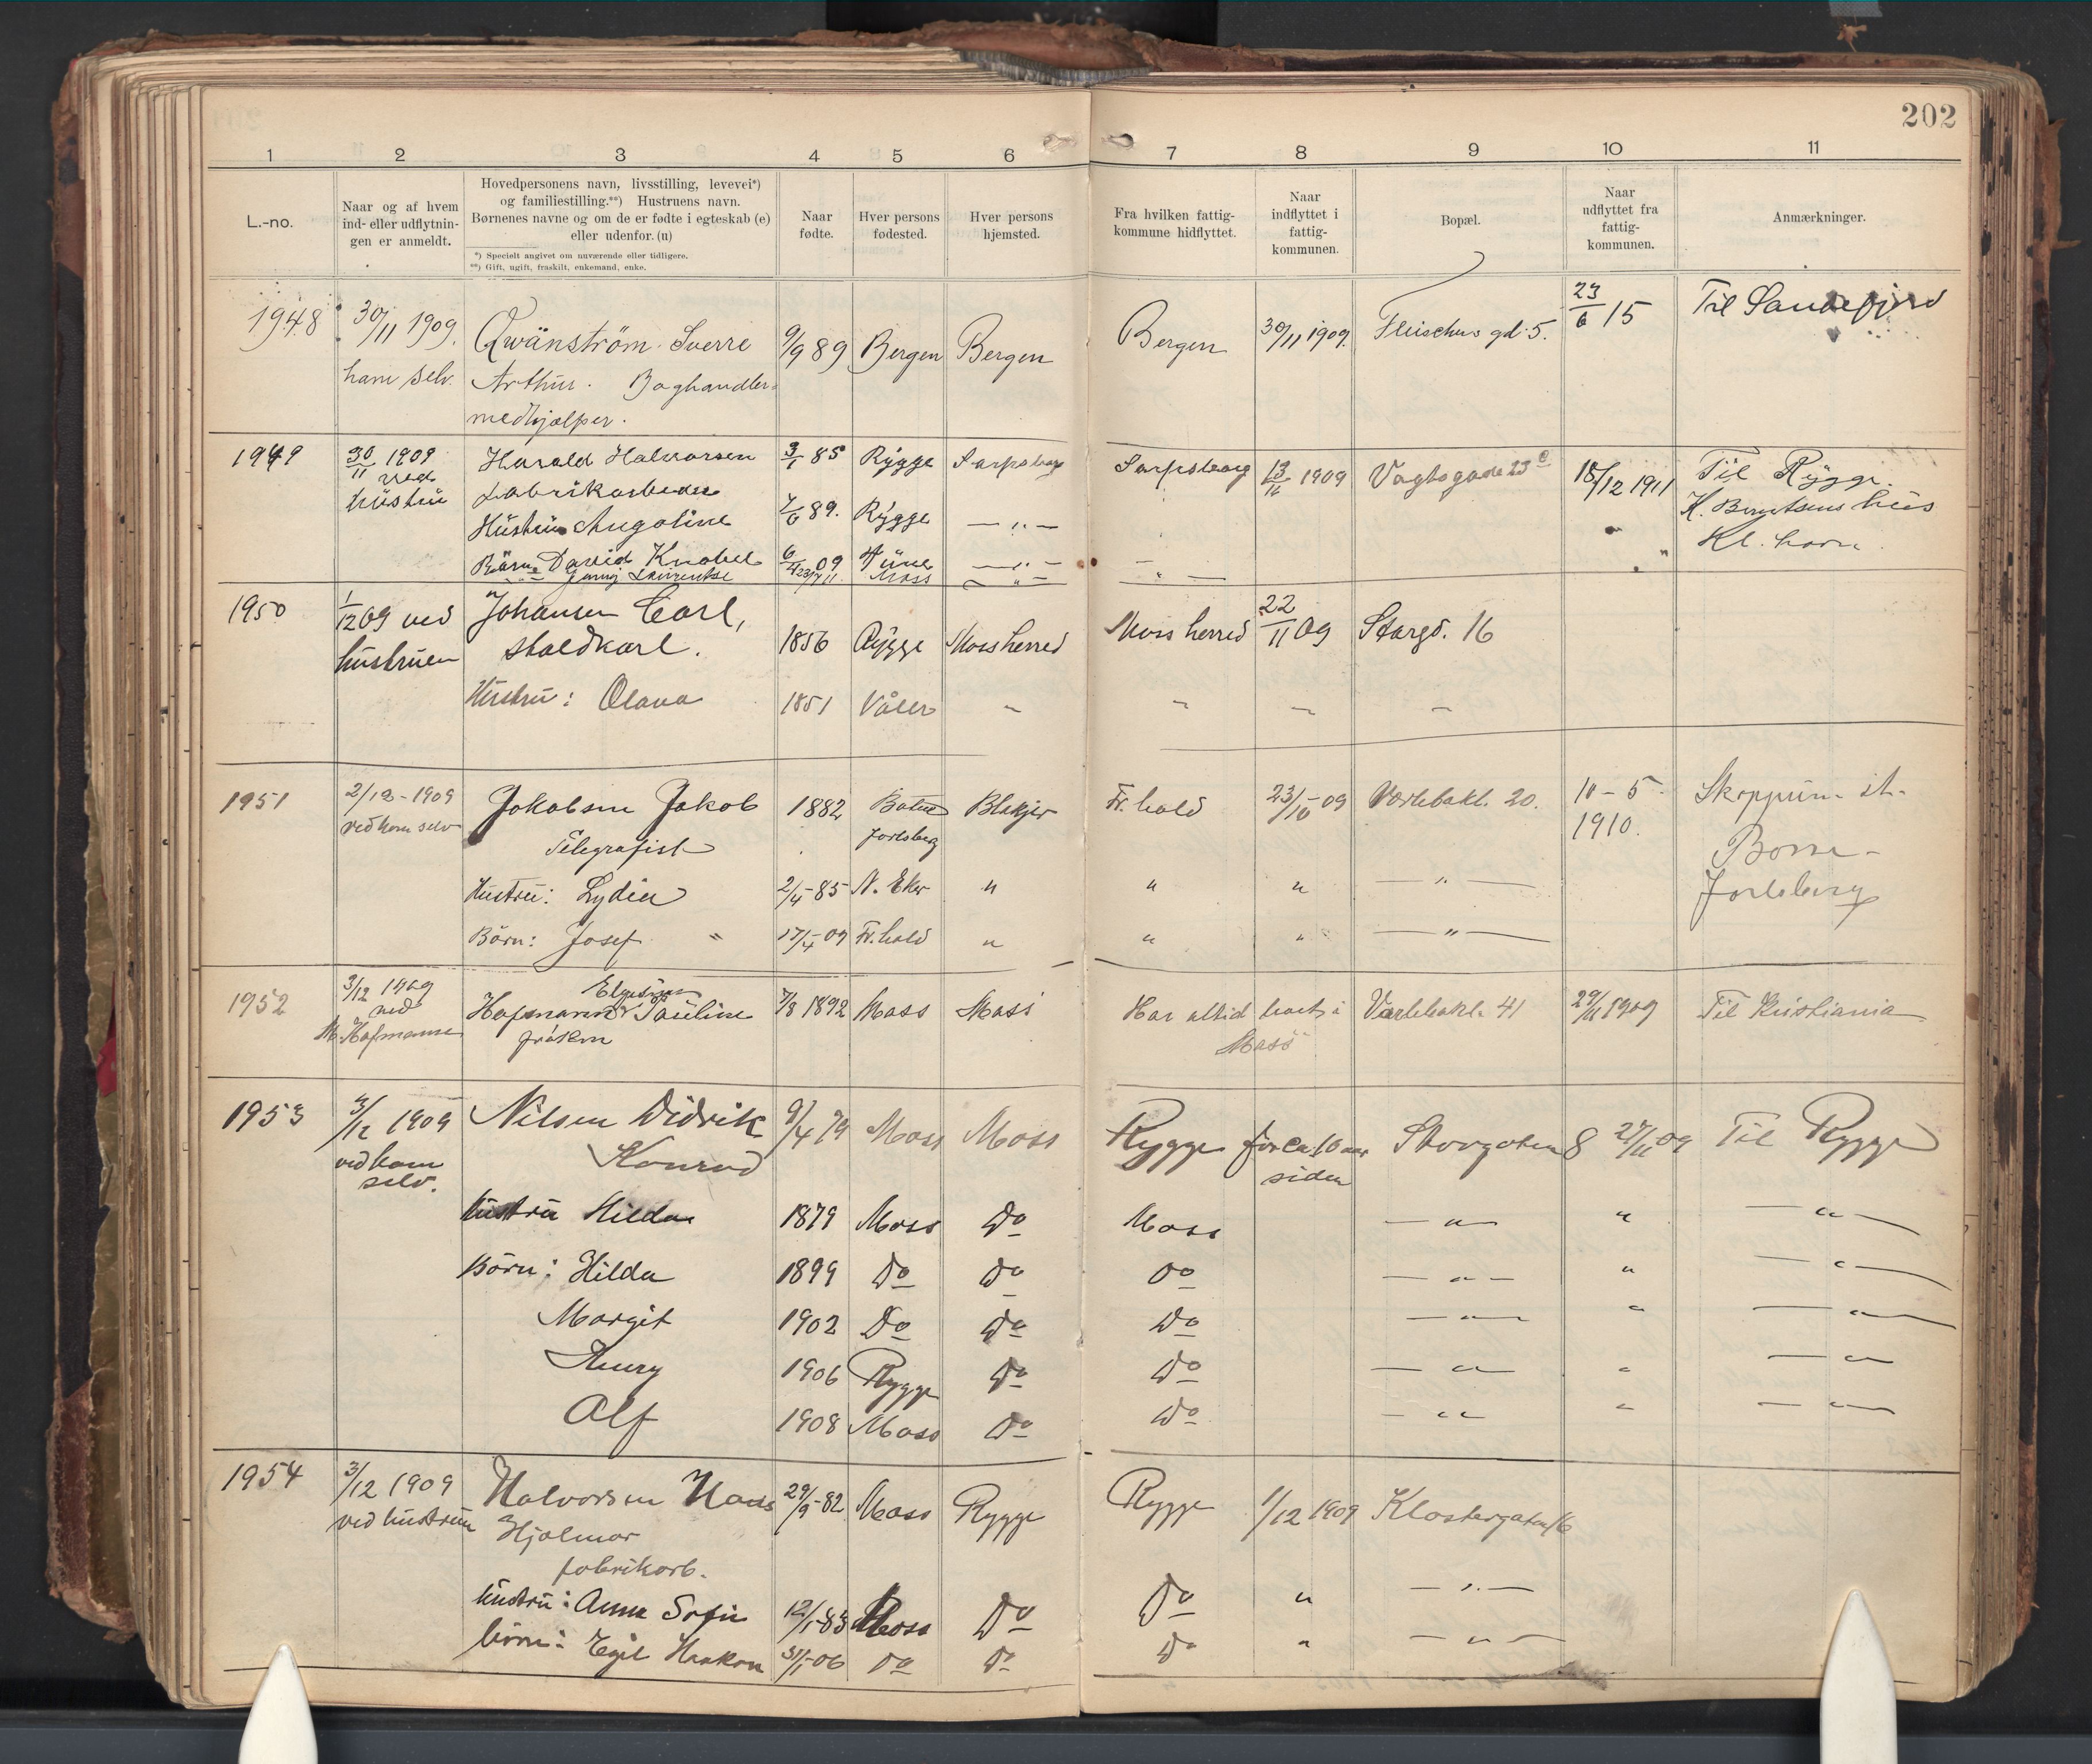 202
1 2 3 4 5 6 7 8 9 10 11
L.-no.
Naar og af hvem
ind- eller udflytnin-
gen er anmeldt.
Hovedpersonens navn, livsstilling, levevei*)
og familiestilling.**) Hustruens navn.
Børnenes navne og om de er fødte i egteskab (e)
eller udenfor. (u)
*) Specielt angivet om nuværende eller tidligere.
**) Gift, ugift, fraskilt, enkemand, enke.
Naar
fødte.
Hver persons
fødested.
Hver persons
hjemsted.
Fra hvilken fattig-
kommune hidflyttet.
Naar
indflyttet i
fattig-
kommunen.
Bopæl.
Naar
udflyttet fra
fattig-
kommunen.
Anmærkninger.
1948 30/11 1909. Qwänström Sverre 9/9 89 Bergen Bergen Bergen 30/11 1909. gd. 5. 23/6 15 Til Sandefjord
ham selv. Arthur. Boghandler-
medhjælper.
1949 30/11 1909 Harald Halvorsen 3/1 85 Rygge Sarpsborg Sarpsborg 13/11 1909 Vogtsgade 23 e 18/12 1911 Til Rygge.
ved
hustru Fabrikarbeider K. Berntsens hus
Hustru Angoline 7/6 89. Rygge — " — Kl. havn.
Børn David Knobel 6/4 09 — " — —
Jenny Laurentse 23/7 11. Moss — " — — " —
1950 1/12 09 ved Johansen Carl, 1856 Rygge Moss herred Moss herred 22/11 09 Storgd. 16
hustruen staldkarl.
Hustru: Olava 1851 Våler " " " "
1951 2/12 - 1909 Jakobsen Jakob 1882 Jarlsberg Blakjer Fr. hald 23/10 - 09 Værlebakt. 20. 10 - 5 1910. Skoppum st.
ved ham selv Telegrafist Borre -
Jarlsberg
Hustru: Lydia 2/4 - 85 N. Eker " " " — " —
Børn: Josef " 17/4 - 09 Fr. hald " " " — " —
1952 3/12 1909 Elgesine
ved Hofmann Pauline 7/8 1892 Moss Moss Har altid boet i Værlebakt. 41 29/11 1909 Til Kristiania
M. Hofmann frøken Moss
1953 3/12 1909 Nilsen Didrik 9/4 79 Moss Moss Rygge for ca. 10 aar siden Storgaten 8 27/11 09 Til Rygge
ved ham
selv. Konrad
hustru Hilda 1879 Moss Do Moss — " — " — " —
Børn: Hilda 1899 Do Do Do — " — " — " —
Margit 1902 Do Do Do — " — " — " —
1906 Rygge Do Do — " — " — " —
Alf 1908 Moss Do Do — " — " — " —
1954 3/12 1909 Halvorsen Hans 29/9 - 82 Moss Rygge Rygge 1/12 1909 Klostergaten 16
ved hustruen Hjalmar
fabrikarb.
hustru: Anna Sofie 12/1 - 83 Moss Do Do " — " —
børn: Egil Haakon 31/1 - 06 Do Do Do " — " —